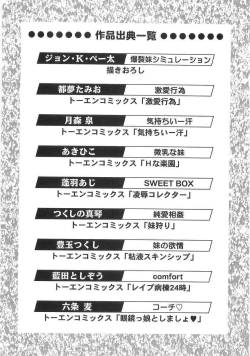 作品出典一覧
ジョン・K・ペー太 爆裂妹シミュレーション
描きおろし
都夢たみお 激愛行為
トーエンコミックス「激愛行為」
月森 泉 気持ちいー汗
トーエンコミックス「気持ちいー汗」
あきひこ 微乳な妹
トーエンコミックス「Hな楽園」
蓮羽あじ SWEET BOX
トーエンコミックス「凌辱コレクター」
つくしの真琴 純愛相姦
トーエンコミックス「妹狩り」
豊玉つくし 妹の欲情
トーエンコミックス「粘液スキンシップ」
藍田としぞう comfort
トーエンコミックス「レイプ病棟24時」
六条 麦 コーチ♡
トーエンコミックス「眼鏡っ娘としましょ♥」